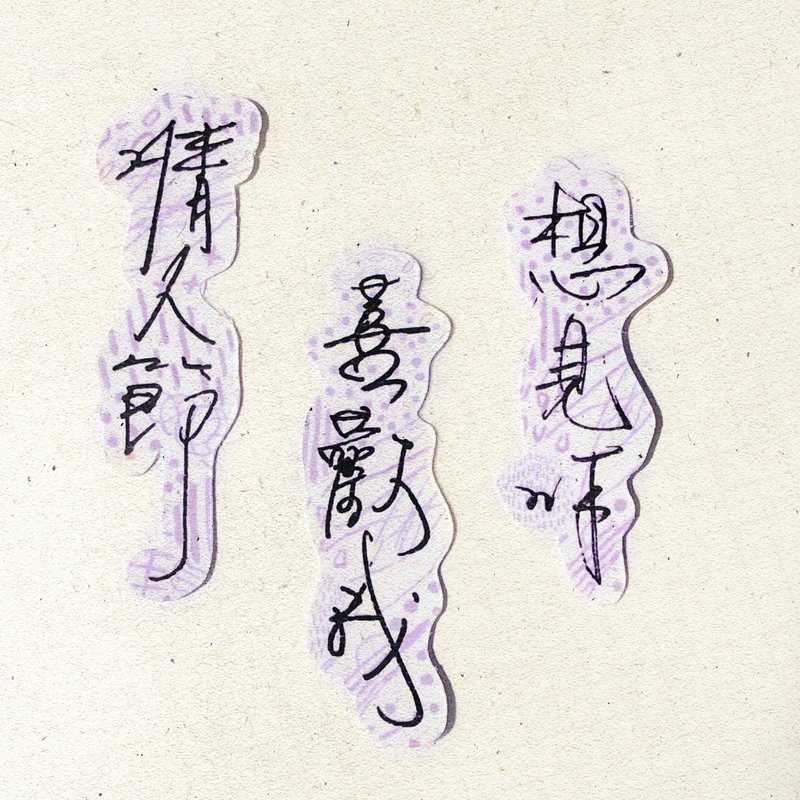 想見你
喜歡我
情人節